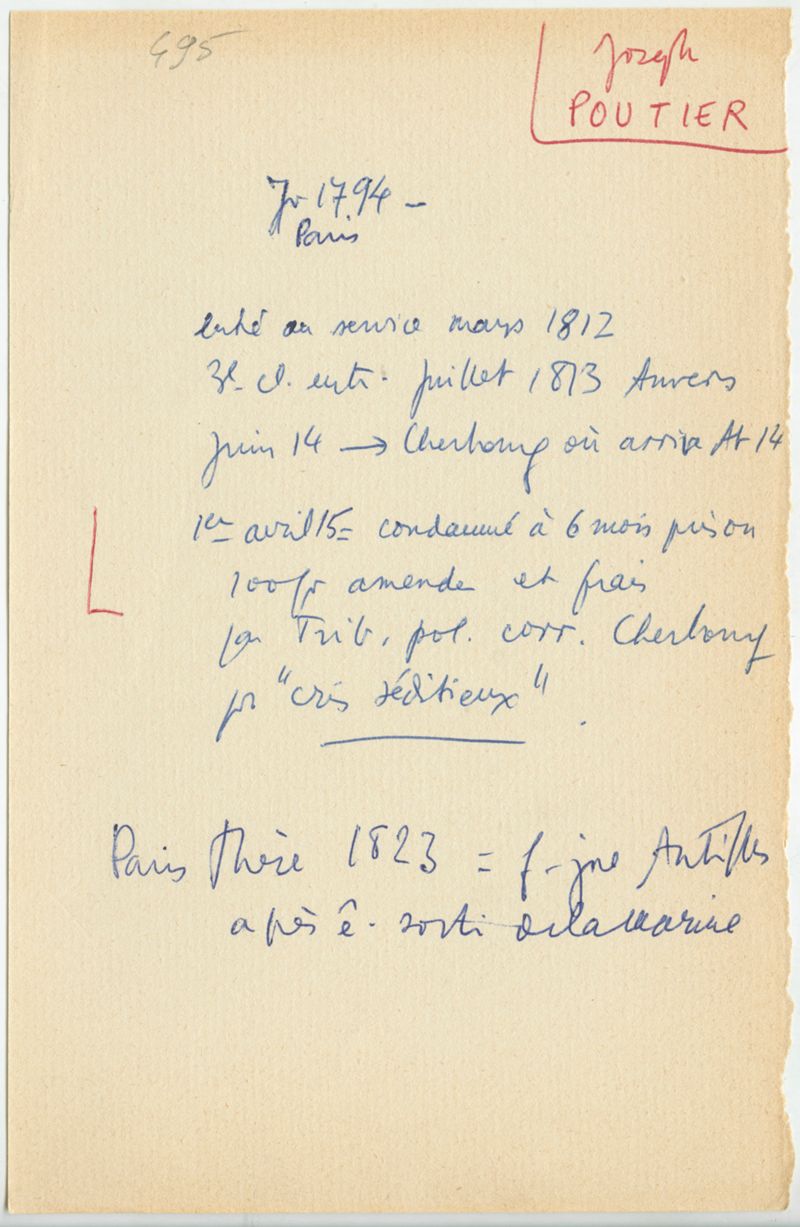 495
Joseph
POUTIER
Jr 1794 -
Paris
entré au service mars 1812
3e cl. entr. Juillet 1813 Anvers
Juin 14 → Cherbourg où arriva At 14
1er avril 15 = condamné à 6 mois prison
100 fr amende et frais
par Trib. pol. corr. Cherbourg
pr "cris séditieux"
Paris thèse 1823 = f. jne Antilles
après ê. sorti de la Marine